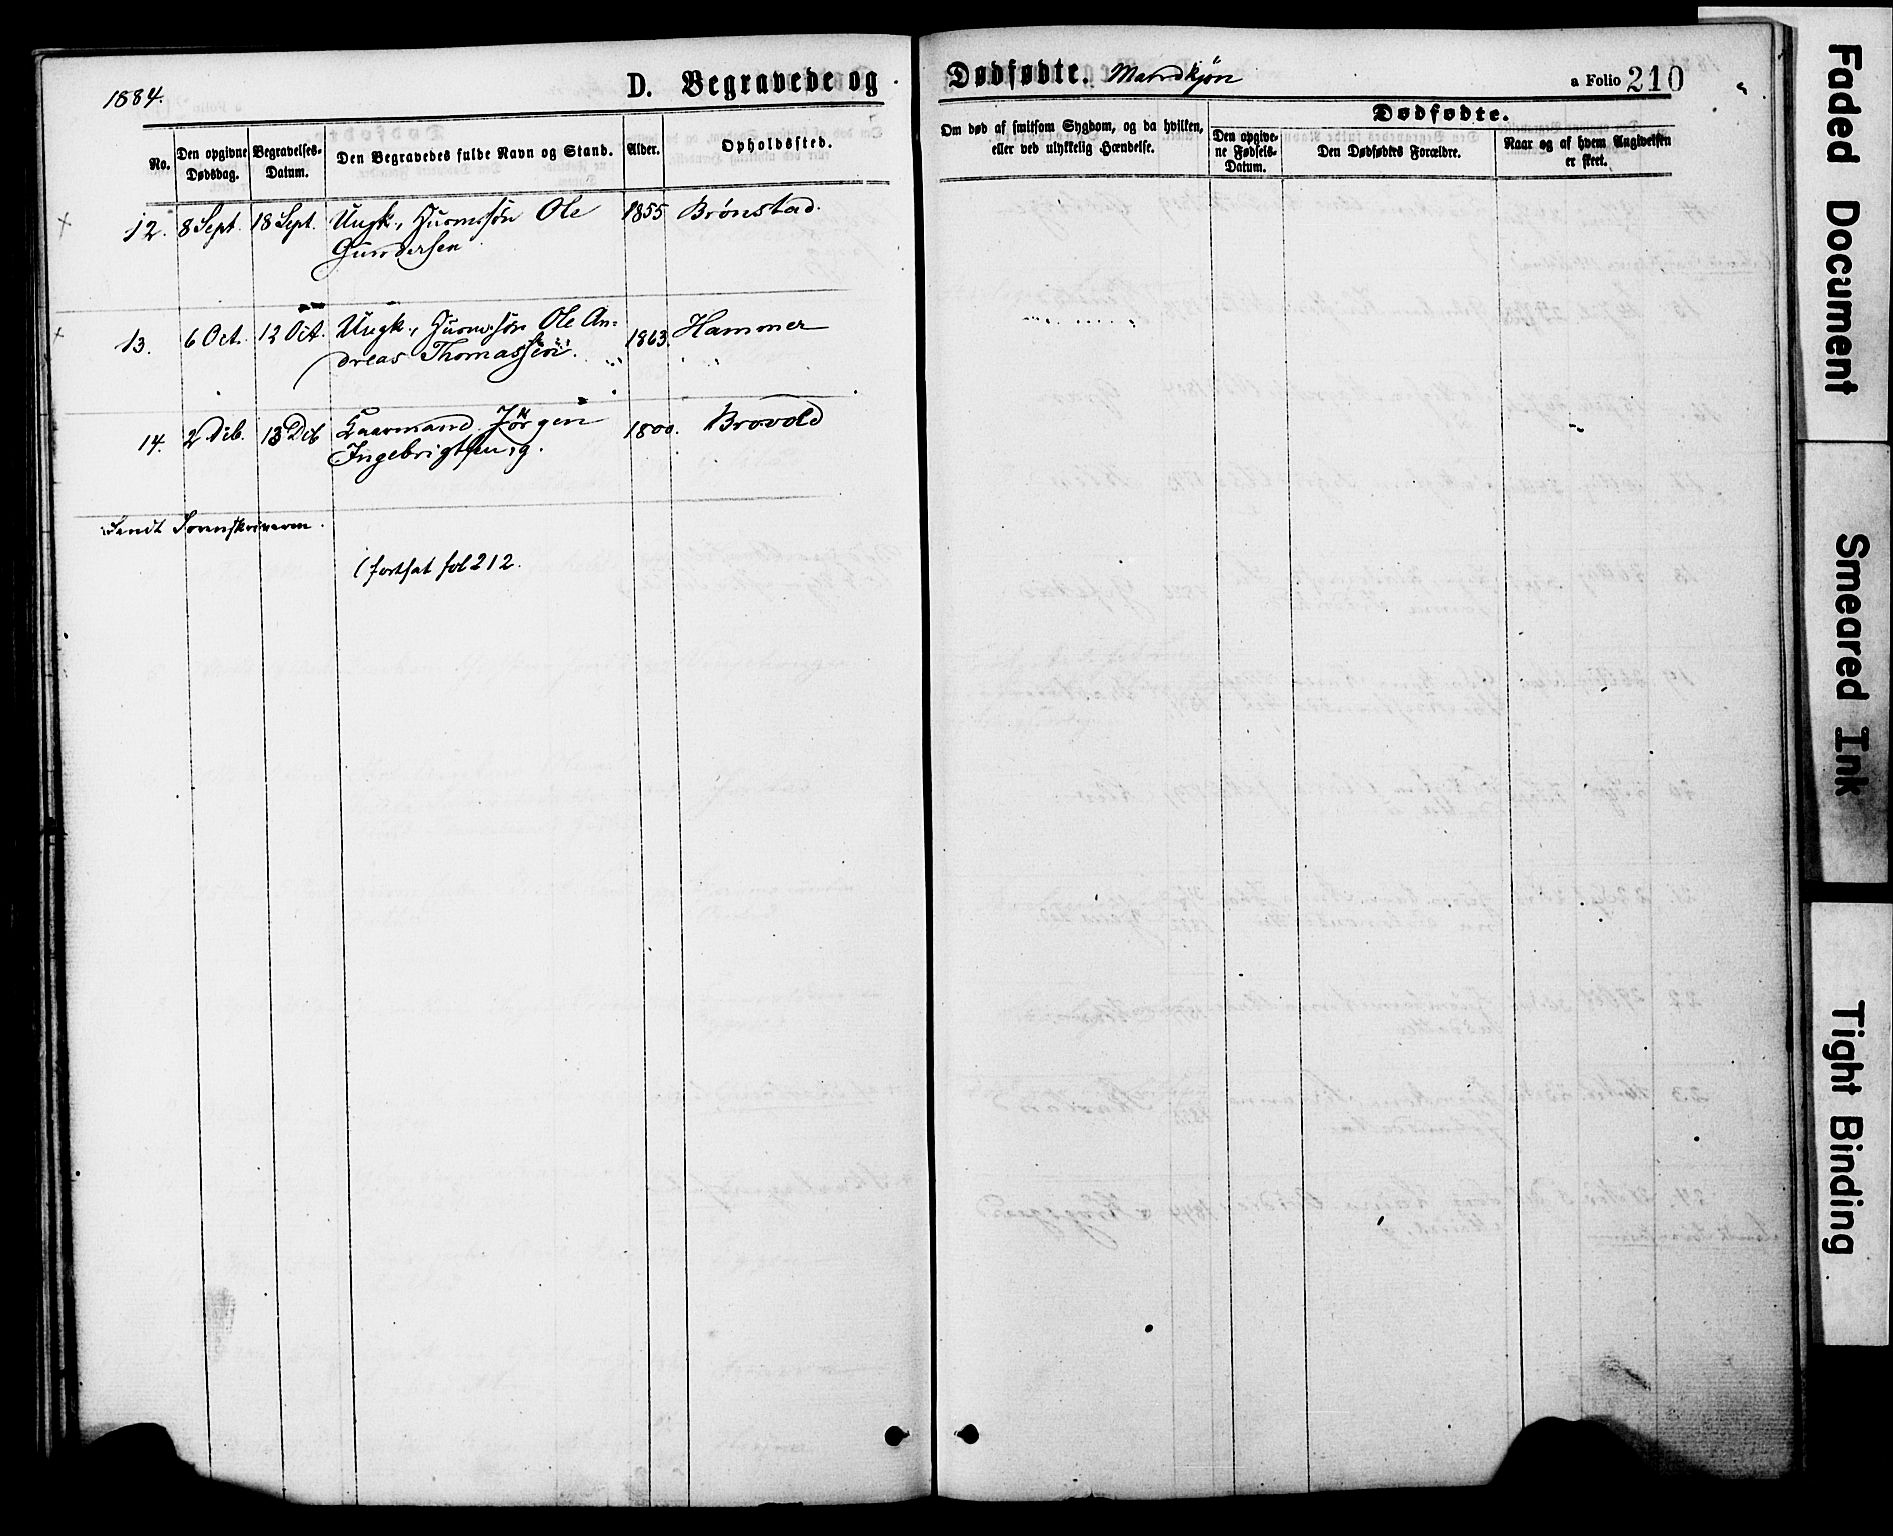 1884.
D. Begravede og Dødfødte. Mandkjøn
a Folio 210
No.
Den opgivne Dødsdag.
Begravelses-Datum.
Den Begravedes fulde Navn og Stand.
Alder.
Opholdssted.
Om død af smitsom Sygdom, og da hvilken,
eller ved ulykkelig Hændelse.
Dødfødte.
Den opgive-
ne Fødsels-
Datum.
Den Dødfødtes Forældre.
Naar og af hvem Angivelsen
er skeet.
12. 8 Sept. 18 Sept. Ungk., Huusmssøn Ole 1855 Brønstad.
Gundersen
13. 6 Oct. 12 Oct. Ungk., Huusmsøn Ole An= 1863. Hammer
dreas Thomassen.
14. 2 Deb. 13 Deb Gaarmand Jørgen 1800. Brovold
Ingebrigtsen, g.
Sendt Sorenskriveren.
(fortsat fol 212.
Faded Document
Smeared Ink
Tight Binding